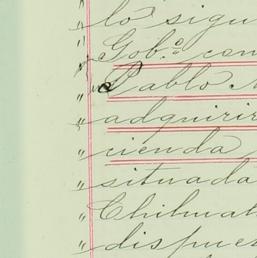 lo sigu
" Gob.º con
" Pablo
" adquirir
" cienda
" situada
" Chihuah
" dispues